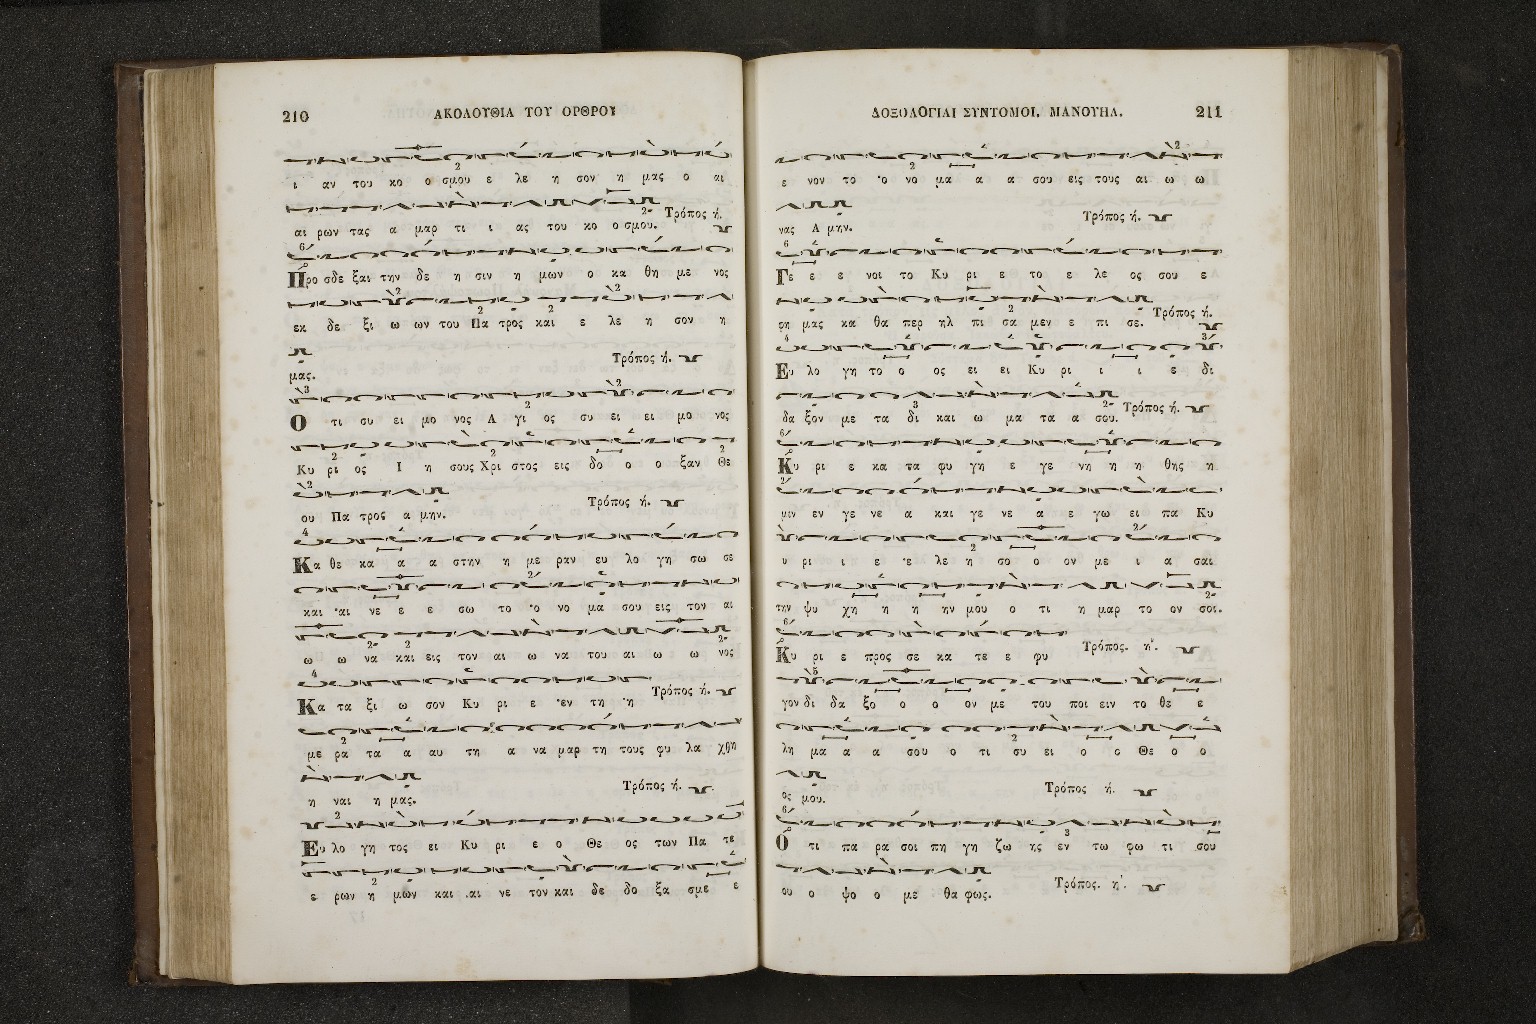 210 ΑΚΟΛΟΥΘΙΑ ΤΟΥ ΟΡΘΡΟΥ
ι αν του κο ο σμου ε λε η σον η μας ο αι
αι ρων τας α μαρ τι ι ας του κο ο σμου. Τρόπος ή.
Προ σδε ξαι την δε η σιν η μων ο κα θη με νος
εκ δε ξι ω ων του Πα τρος και ε λε η σον η
μας. Τρόπος ή.
Ο τι συ ει μο νος Α γι ος συ ει ει μο νος
Κυ ρι ος Ι η σους Χρι στος εις δο ο ο ξαν Θε
ου Πα τρος α μην. Τρόπος ή.
Κα θε κα α α στην η με ραν ευ λο γη σω σε
και αι νε ε ε σω το ο νο μα σου εις τον αι
ω ω να και εις τον αι ω να του αι ω ω νος
Κα τα ξι ω σον Κυ ρι ε εν τη η Τρόπος ή.
με ρα τα α αυ τη α να μαρ τη τους φυ λα χθη
η ναι η μας. Τρόπος ή.
Ευ λο γη τος ει Κυ ρι ε ο Θε ος των Πα τε
ε ρων η μων και αι νε τον και δε δο ξα σμε ε
ΔΟΞΟΛΟΓΙΑΙ ΣΥΝΤΟΜΟΙ. ΜΑΝΟΥΗΛ. 211
ε νον το ο νο μα α α σου εις τους αι ω ω
νας Α μην. Τρόπος ή.
Γε ε ε νοι το Κυ ρι ε το ε λε ος σου ε
φη μας κα θα περ ηλ πι σα μεν ε πι σε. Τρόπος ή.
Ευ λο γη το ο ος ει ει Κυ ρι ι ι ε δι
δα ξον με τα δι και ω μα τα α σου. Τρόπος ή.
Κυ ρι ε κα τα φυ γη ε γε νη η η θης η
μιν εν γε νε α και γε νε α ε γω ει πα Κυ
υ ρι ι ε ε λε η σο ο ον με ι α σαι
την ψυ χη η η ην μου ο τι η μαρ το ον σοι.
Κυ ρι ε προς σε κα τε ε φυ Τρόπος. η'.
γον δι δα ξο ο ο ον με του ποι ειν το θε ε
λη μα α α σου ο τι συ ει ο ο Θε ο ο
ος μου. Τρόπος ή.
Ο τι πα ρα σοι πη γη ζω ης εν τω φω τι σου
ου ο ψο ο με θα φως. Τρόπος. η'.